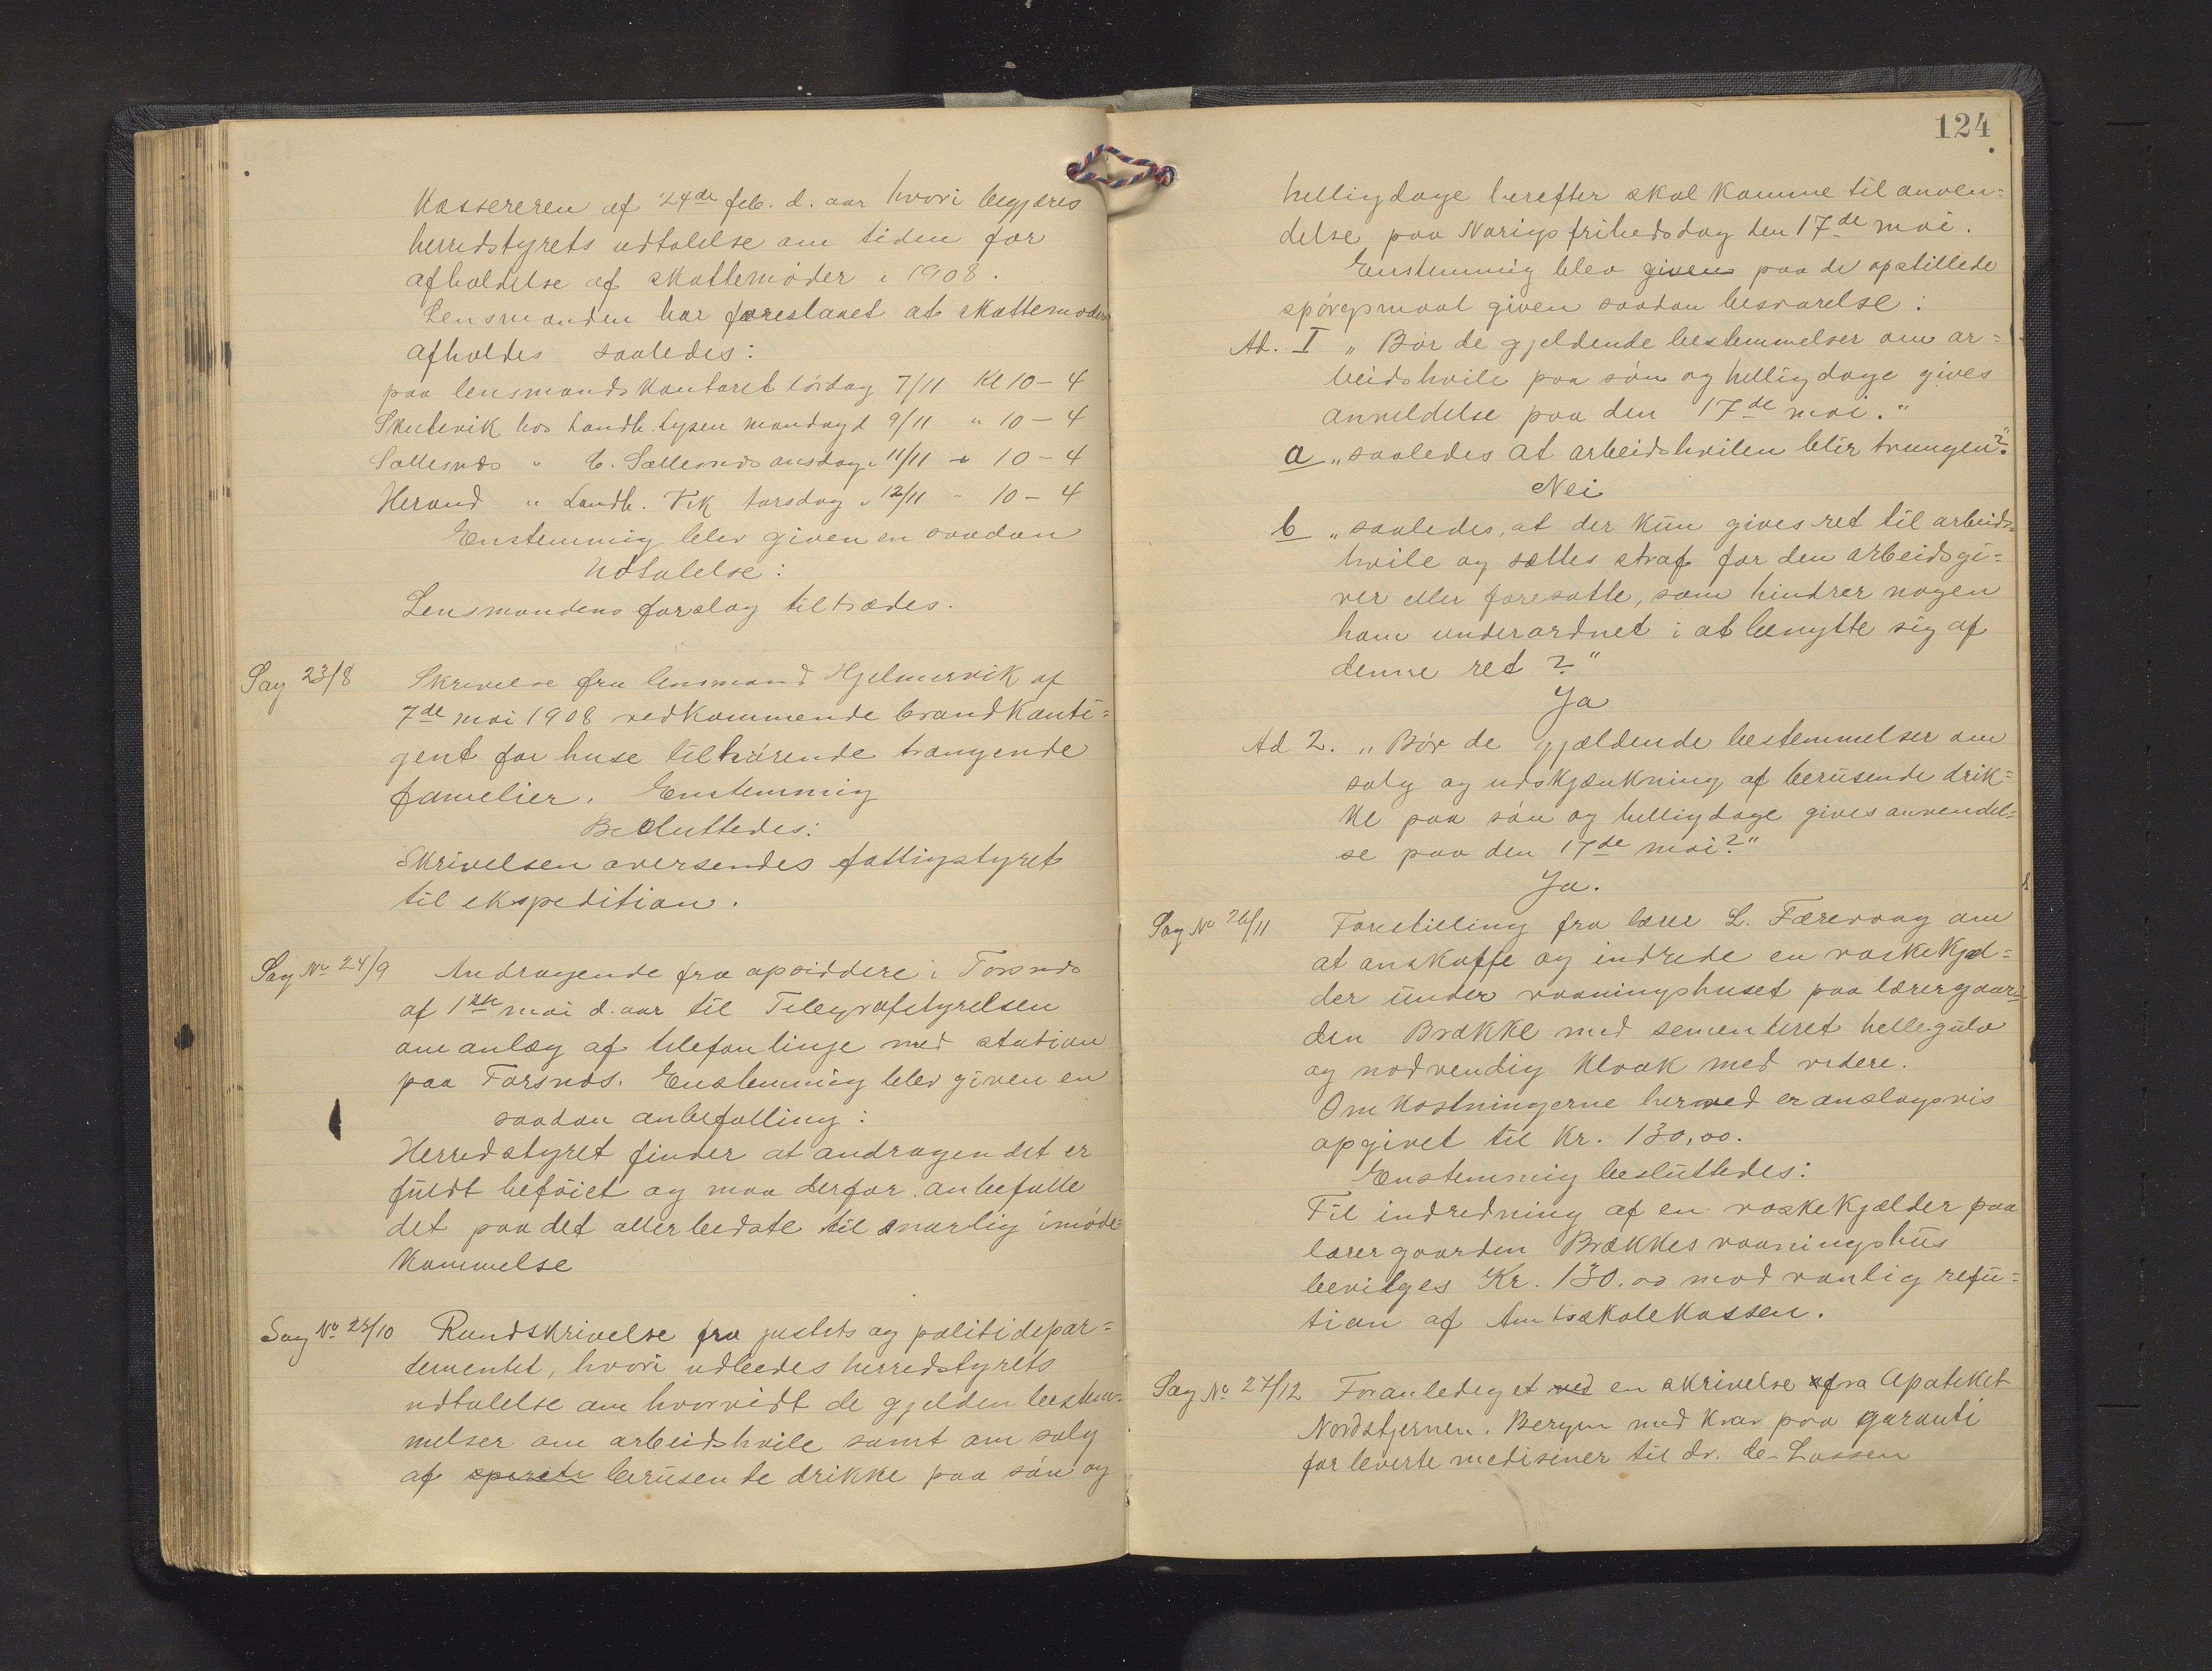 Kassereren af 24de feb. d. aar hvori begjæres
herredstyrets udtalelse om tiden for
afholdelse af skattemøder i 1908.
Lensmanden har foreslaaet at skattemøderne
afholdes saaledes:
paa lensmandskontoret lördag 7/11 Kl 10 – 4
Skutevik hos Landh. Lysen mandag d 9/11 " 10 – 4
Sallesnds " C. Sallesnds onsdag " 11/11 " 10 – 4
Herand " Landh. Vik torsdag " 12/11 – 10 – 4
Enstemmig blev given en saadan
Udtalelse:
Lensmandens forslag tiltrædes.
Sag 23/8 Skrivelse fra lensmand Hjelmervik af
7de mai 1908 vedkommende brandkonti=
gent for huse tilhörende trængende
familier. Enstemmig
Besluttedes:
Skrivelsen oversendes fattigstyret
til ekspedition.
Sag No 24/9 Andragende fra opsiddere i Torsnds
af 1ste mai d. aar til Telegrafstyrelsen
om anlæg af telefonlinje med station
paa Torsnds. Enstemmig blev given en
saadan anbefalling:
Herredstyret finder at andragendet er
fuldt beföiet og maa derfor anbefalle
det paa det allerbedste til snarlig imøde
kommelse
Sag No 25/10 Rundskrivelse fra justits og politidepar=
tementet, hvori udbedes herredstyrets
udtalelse om hvorvidt de gjelden bestem=
melser om arbeidshvile samt om salg
af spirits berusende drikke paa søn og
124
helligdage herefter skal komme til anven=
delse paa Norigs frihedsdag den 17de mai.
Enstemmig blev given paa de opstillede
spörgsmaal given saadan besvarelse:
Ad. I " Bör de gjeldende bestemmelser om ar=
beidshvile paa søn og helligdage gives
anveldelse paa den 17de mai."
a " saaledes at arbeidshvilen blir tvungen?"
Nei
b " saaledes, at der kun gives ret til arbeids=
hvile og sættes straf for den arbeidsgi=
ver eller foresatte, som hindrer nogen
ham underordnet i at benytte sig af
denne ret?"
Ja
Ad 2. " Bör de gjældende bestemmelser om
salg og udskjænkning af berusende drik=
ke paa søn og helligdage gives anvendel=
se paa den 17de mai?"
Ja.
Sag No 26/11 Forestilling fra lærer L. Færevaag om
at anskaffe og indrede en vaskekjel=
der under vaaningshuset paa lærergaar=
den Brække med sementeret hellegulv
og nødvendig kloak med videre.
Omkostningerne herved er anslagsvis
opgivet til Kr. 130,00.
Enstemmig besluttedes:
Til indredning af en vaskekjælder paa
lærergaarden Brækkes vaaningshus
bevilges Kr. 130.00 mod vanlig refu=
tion af Amtsskolekassen.
Sag No 27/12 Foranlediget ved en skrivelse fra Apoteket
Nordstjernen. Bergen med krav paa garanti
for leverte medisiner til dr. le-Lassen